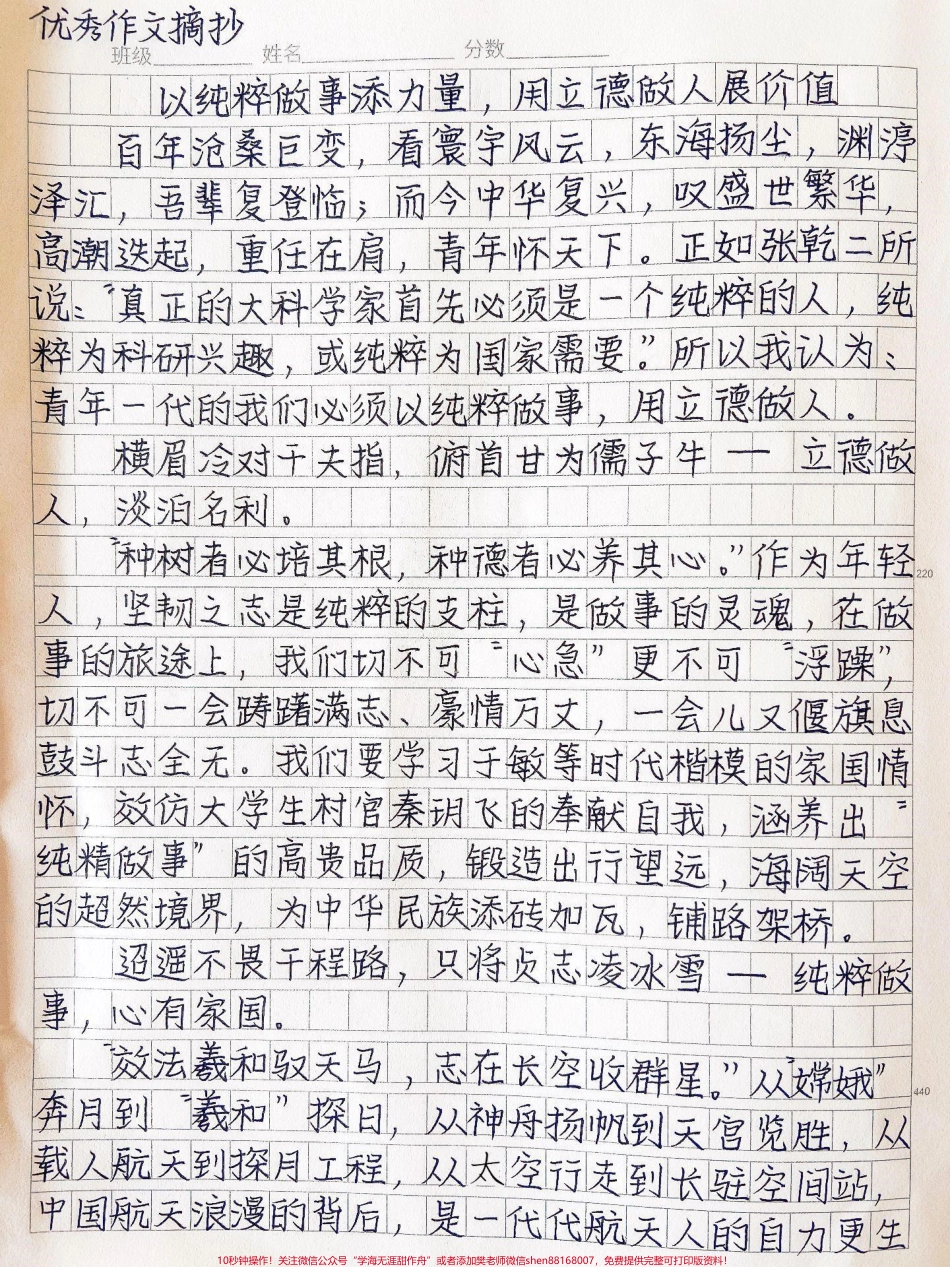 优秀作文摘抄
班级 姓名 分数
以纯粹做事添力量，用立德做人展价值
百年沧桑巨变，看寰宇风云，东海扬尘，渊渟
泽汇，吾辈复登临；而今中华复兴，叹盛世繁华，
高潮迭起，重任在肩，青年怀天下。正如张乾二所
说：“真正的大科学家首先必须是一个纯粹的人，纯
粹为科研兴趣，或纯粹为国家需要。”所以我认为：
青年一代的我们必须以纯粹做事，用立德做人。
横眉冷对千夫指，俯首甘为儒子牛 — 立德做
人，淡泊名利。
“种树者必培其根，种德者必养其心。”作为年轻
220
人，坚韧之志是纯粹的支柱，是做事的灵魂，在做
事的旅途上，我们切不可“心急”更不可“浮躁”，
切不可一会踌躇满志、豪情万丈，一会儿又偃旗息
鼓斗志全无。我们要学习于敏等时代楷模的家国情
怀，效仿大学生村官秦玥飞的奉献自我，涵养出“
纯精做事”的高贵品质，锻造出行望远，海阔天空
的超然境界，为中华民族添砖加瓦，铺路架桥。
迢遥不畏千程路，只将贞志凌冰雪 — 纯粹做
事，心有家国。
“效法羲和驭天马，志在长空收群星。”从“嫦娥”
440
奔月到“羲和”探日，从神舟扬帆到天宫览胜，从
载人航天到探月工程，从太空行走到长驻空间站，
中国航天浪漫的背后，是一代代航天人的自力更生
10秒钟操作！关注微信公众号“学海无涯甜作舟”或者添加樊老师微信shen88168007，免费提供完整可打印版资料！